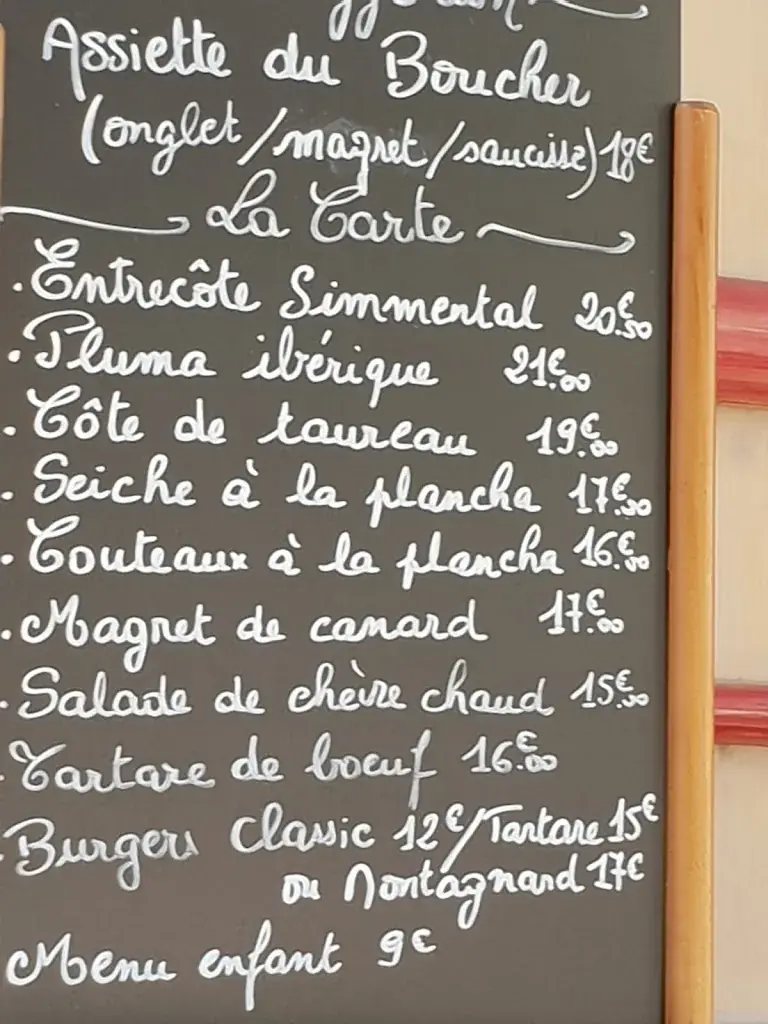 Assiette du Boucher
(onglet/magret/saucisse) 18€
La Carte
. Entrecôte Simmental 20€.50
. Pluma ibérique 21€.00
. Côte de taureau 19€.00
. Seiche à la plancha 17€.50
. Couteaux à la plancha 16€.50
. Magret de canard 17€.00
. Salade de chèvre chaud 15€.50
. Tartare de boeuf 16€.00
. Burgers Classic 12€/Tartare 15€
ou Montagnard 17€
Menu enfant 9€